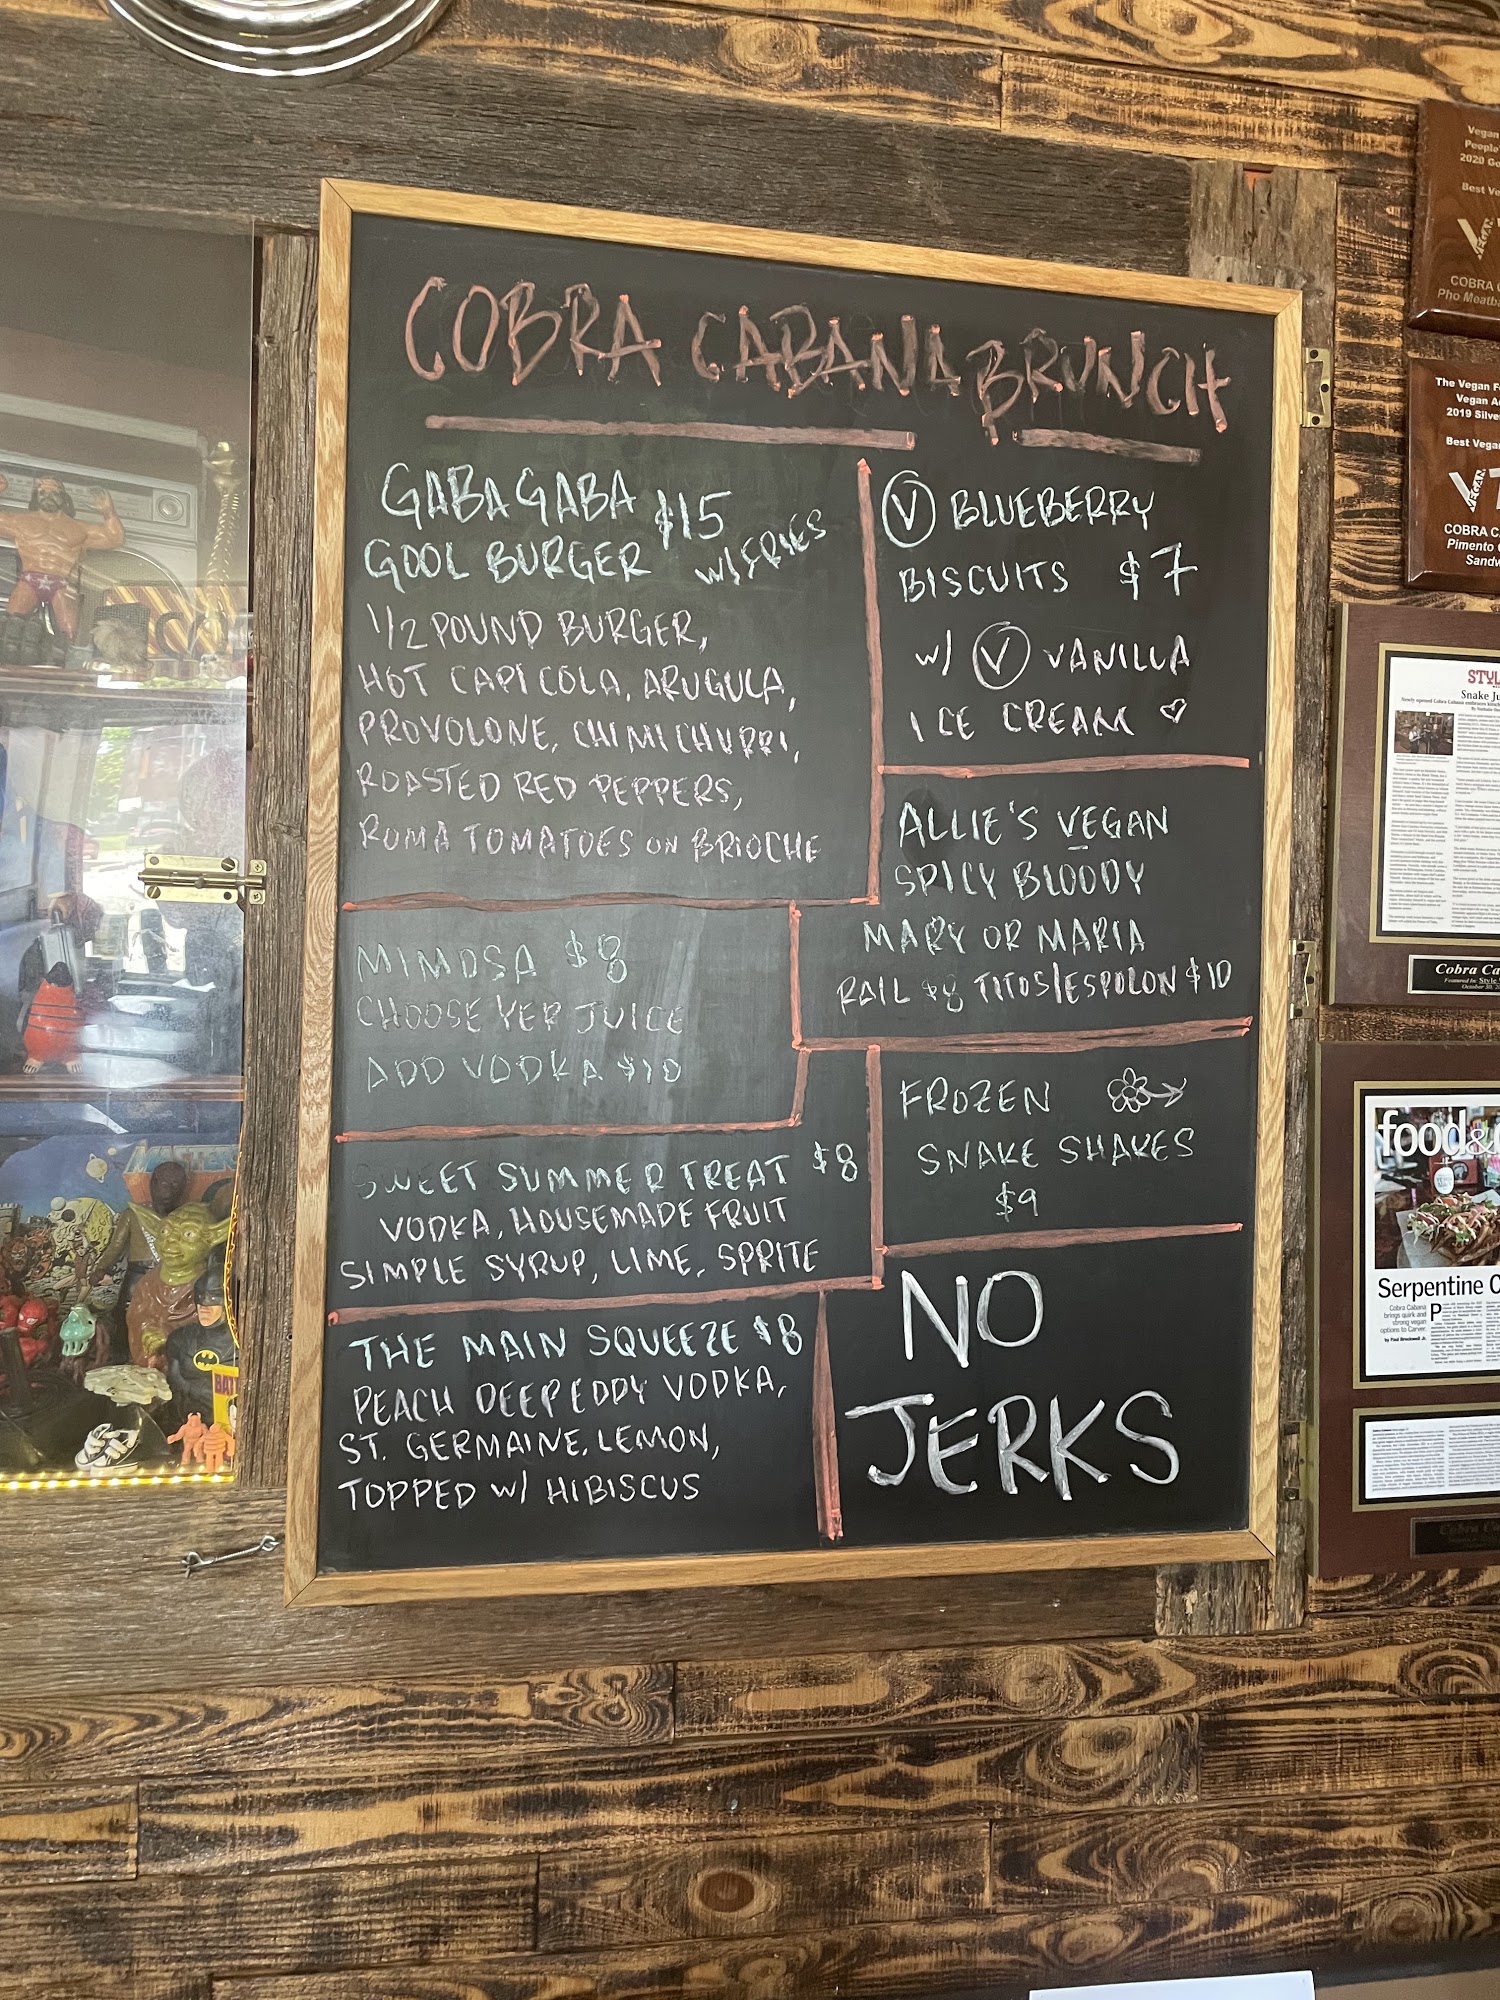 COBRA CABANA BRUNCH
GABAGABA
GOOL BURGER
$15
W/ FRIES
1/2 POUND BURGER,
HOT CAPICOLA, ARUGULA,
PROVOLONE, CHIMICHURRI,
ROASTED RED PEPPERS,
ROMA TOMATOES ON BRIOCHE
V BLUEBERRY
BISCUITS $7
W/ V VANILLA
ICE CREAM
ALLIE'S VEGAN
SPICY BLOODY
MARY OR MARIA
RAIL $8 TITOS/ESPOLON $10
MIMOSA $8
CHOOSE YER JUICE
ADD VODKA $10
FROZEN
SNAKE SHAKES
$9
SWEET SUMMER TREAT $8
VODKA, HOUSEMADE FRUIT
SIMPLE SYRUP, LIME, SPRITE
THE MAIN SQUEEZE $8
PEACH DEEP EDDY VODKA,
ST. GERMAINE, LEMON,
TOPPED W/ HIBISCUS
NO
JERKS
Vegan
People'
2020 Go
Best Ve
VEGAN
COBRA
Pho Meatba
The Vegan F
Vegan A
2019 Silver
Best Vegan
VEGAN
COBRA CA
Pimento
Sandw
STYL
Snake Ju
Cobra Ca
Featured in: Style
October 30, 20
food&
Serpentine
Cobra Cabana
brings quirk and
strong vegan
options to Carver.
BAT